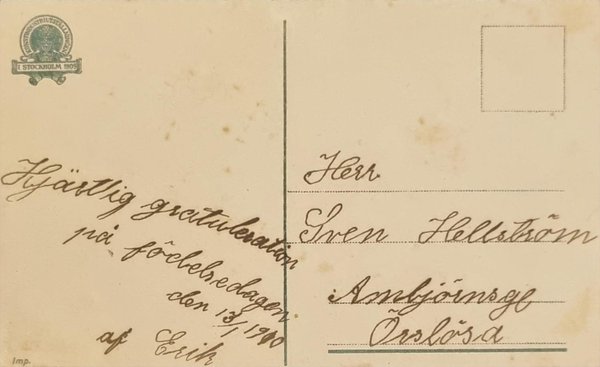 KONSTINDUSTRIUTSTÄLLNINGEN
I STOCKHOLM 1909
Hjärtlig gratulation
på födelsedagen
den 13/1 1910
af Erik
Imp.
Herr
Sven Hellström
Ambjörnsge
Örslösa